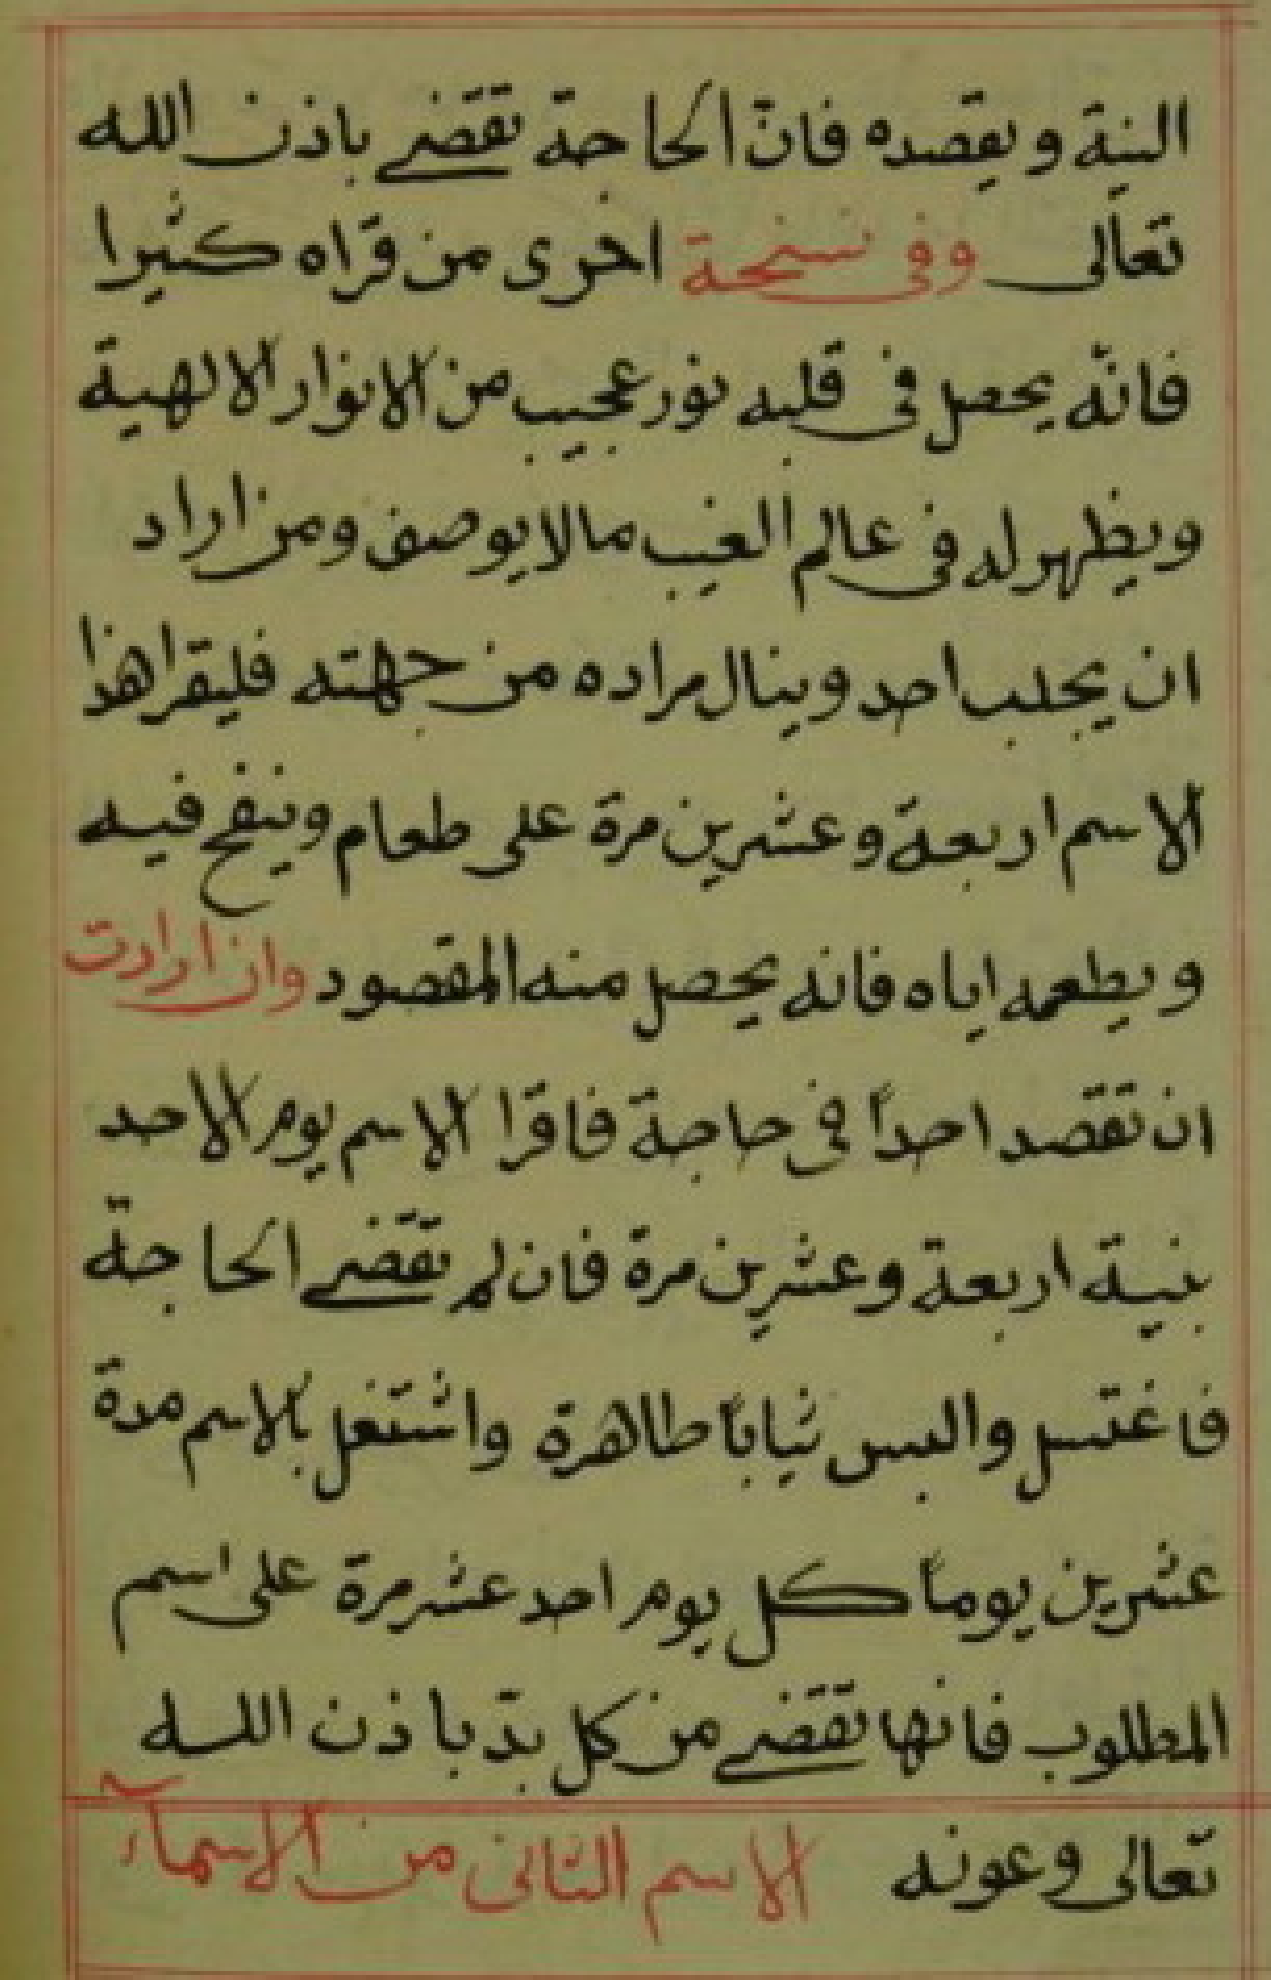 النية ويقصده فانّ الحاجة تقضى باذن الله
تعالى وفى نسخة اخرى من قراه كثيرا
فانّه يحصل فى قلبه نور عجيب من الانوار الالهية
ويظهر له فى عالم الغيب مالا يوصف ومن اراد
ان يجلب احد وينال مراده من جهته فليقرا هذا
الاسم اربعة وعشرين مرة على طعام وينفخ فيه
ويطعمه اياه فانه يحصل منه المقصود وان ارادت
ان تقصد احداً فى حاجة فاقرا الاسم يوم الاحد
بنية اربعة وعشرين مرة فان لم تقضى الحاجة
فاغتسل والبس ثياباً طاهرة واشتغل بالاسم مدة
عشرين يوماً كل يوم احد عشر مرة على اسم
المطلوب فانها تقضى من كل بدّ باذن الله
تعالى وعونه الاسم الثانى من الاسمآء